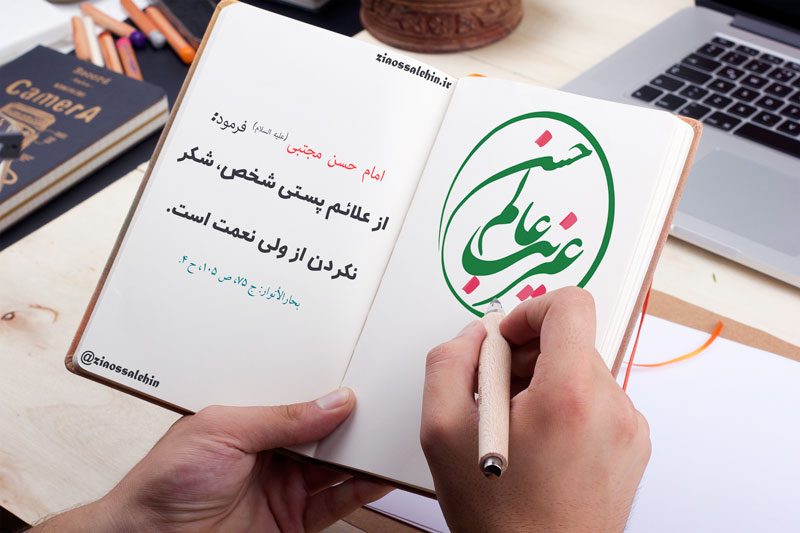 ziaossalehin.ir
امام حسن مجتبی (علیه السلام) فرمود:
از علائم پستی شخص، شکر
نکردن از ولی نعمت است.
بحارالأنوار: ج ۷۵، ص ۱۰۵، ح ۴.
@ziaossalehin
حسن
غریب عالم
CamerA